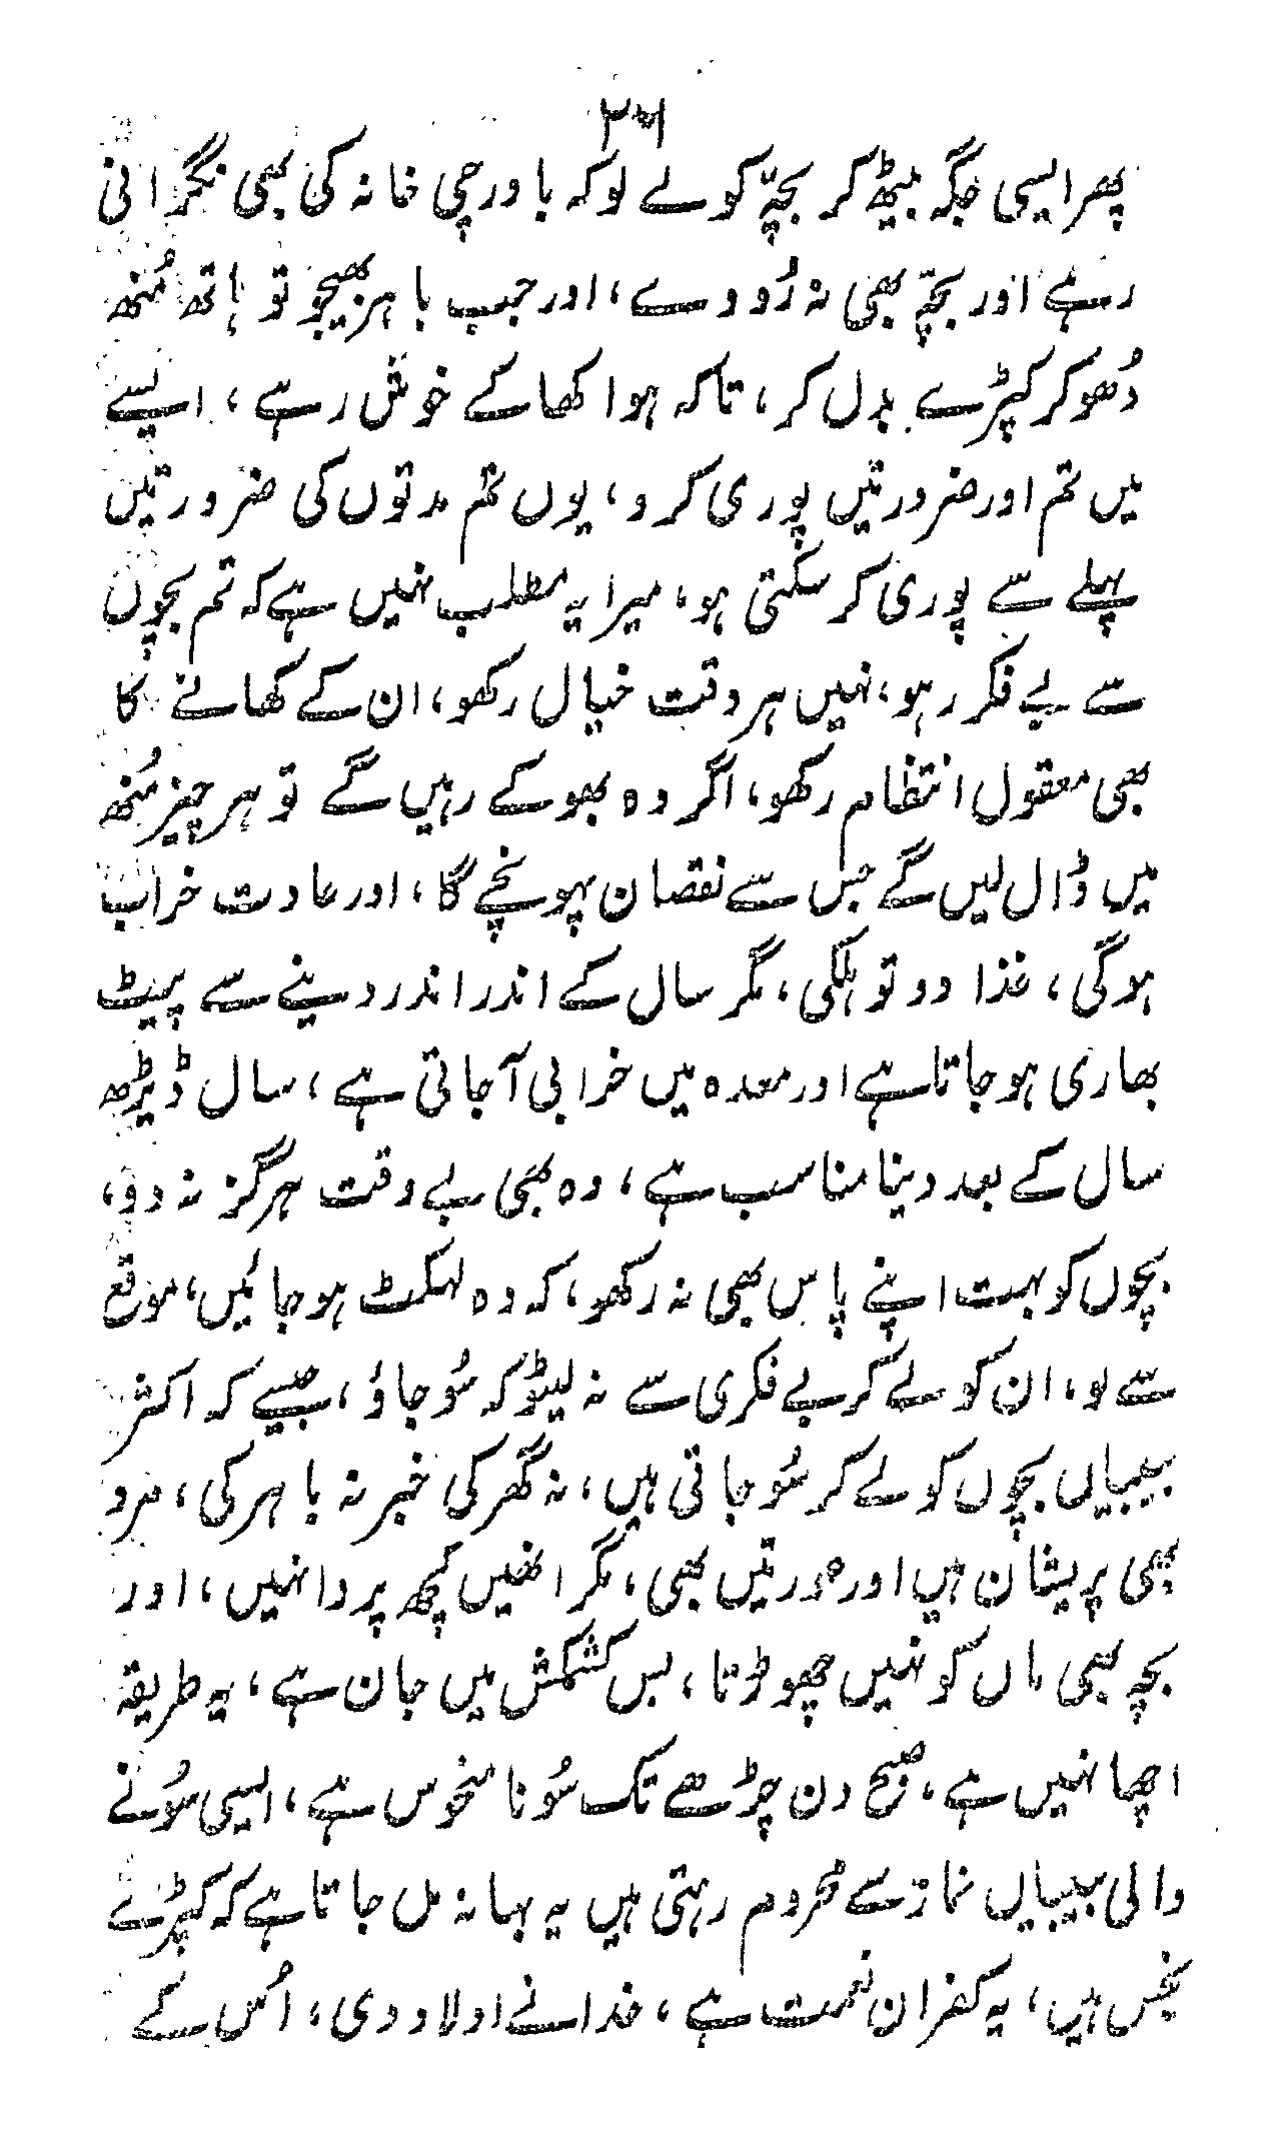 پھر ایسی جگہ بیٹھ کر بچّہ کو لے لو کہ باورچی خانہ کی بھی نگرانی
رہے اور بچّہ بھی نہ رُووے، اور جب باہر بھیجو تو ہاتھ مُنھ
دُھو کر کپڑے بدل کر، تاکہ ہوا کھا کے خوش رہے، ایسے
میں تم اور ضرورتیں پوری کرو، یوں تم مدتوں کی ضرورتیں
پہلے سے پوری کر سکتی ہو، میرا یہ مطلب نہیں ہے کہ تم بچوں
سے بے فکر رہو، نہیں ہر وقت خیال رکھو، ان کے کھانے کا
بھی معقول انتظام رکھو، اگر وہ بھوکے رہیں گے تو ہر چیز مُنھ
میں ڈال لیں گے جس سے نقصان پہونچے گا، اور عادت خراب
ہوگی، غذا دو تو ہلکی، مگر سال کے اندر اندر دینے سے پیٹ
بھاری ہو جاتا ہے اور معدہ میں خرابی آجاتی ہے، سال ڈیڑھ
سال کے بعد دینا مناسب ہے، وہ بھی بے وقت ہرگز نہ دو،
بچوں کو بہت اپنے پاس بھی نہ رکھو، کہ وہ لہکٹ ہو جائیں، موقع
سے لو، ان کو لے کر بے فکری سے نہ لیٹو کہ سُو جاؤ، جیسے کہ اکثر
بیبیاں بچوں کو لے کر سُو جاتی ہیں، نہ گھر کی خبر نہ باہر کی، مرد
بھی پریشان ہیں اور عورتیں بھی، مگر انھیں کچھ پروا نہیں، اور
بچہ بھی ماں کو نہیں چھوڑتا، بس کشمکش میں جان ہے، یہ طریقہ
اچھا نہیں ہے، صبح دن چڑھے تک سُونا منحوس ہے، ایسی سُونے
والی بیبیاں نماز سے محروم رہتی ہیں یہ بہانہ مل جاتا ہے کہ کپڑے
نجس ہیں، یہ کفران نعمت ہے، خدا نے اولاد دی، اُس کے